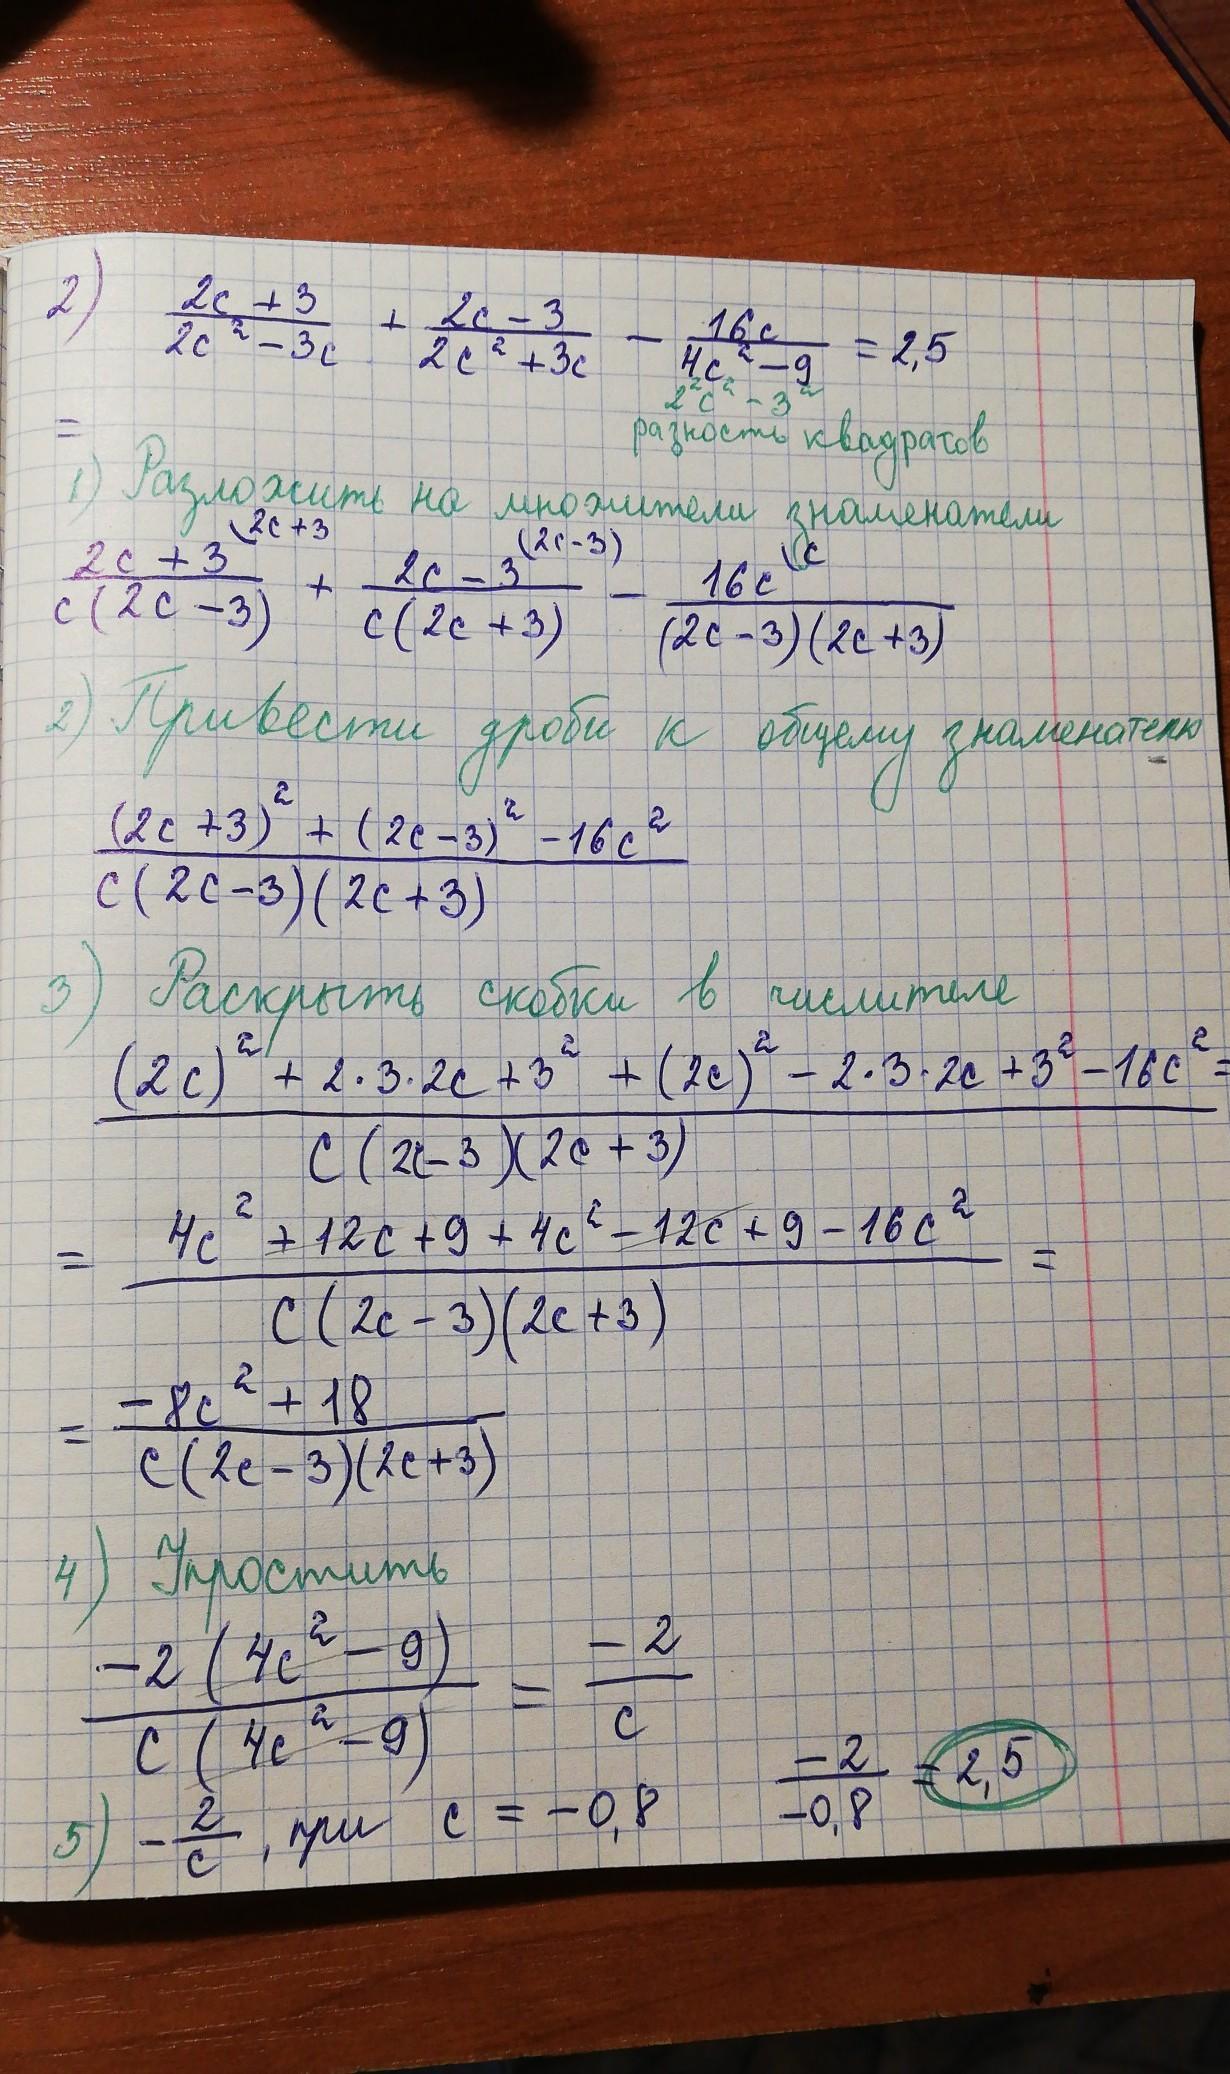 2) (2c + 3)/(2c² - 3c) + (2c - 3)/(2c² + 3c) - 16c/(4c² - 9) = 2,5
2²c² - 3²
=
разность квадратов
1) Разложить на множители знаменатели
(2c + 3)/(c(2c - 3)) \2c+3 + (2c - 3)/(c(2c + 3)) \(2c-3) - 16c/((2c - 3)(2c + 3)) \c
2) Привести дроби к общему знаменателю
((2c + 3)² + (2c - 3)² - 16c²)/(c(2c - 3)(2c + 3))
3) Раскрыть скобки в числителе
((2c)² + 2·3·2c + 3² + (2c)² - 2·3·2c + 3² - 16c²)/(c(2c - 3)(2c + 3)) =
= (4c² + 12c + 9 + 4c² - 12c + 9 - 16c²)/(c(2c - 3)(2c + 3)) =
= (-8c² + 18)/(c(2c - 3)(2c + 3))
4) Упростить
-2(4c² - 9)/(c(4c² - 9)) = -2/c
5) -2/c, при c = -0,8 -2/-0,8 = 2,5